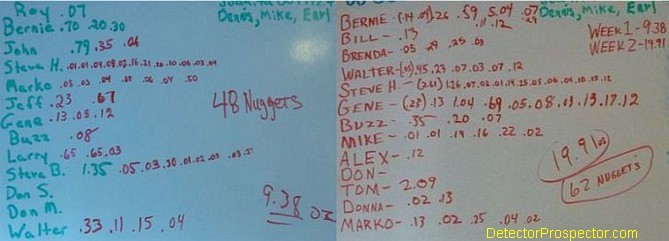 Roy .07
Bernie .70 .20.30
John .79 .35 .06
Steve H. .01.01.09.08.02.16.21
Marko .05 .03 .50
Jeff .23 .67
Gene .13 .05 .12
Buzz .08
Larry .65 .65 .03
Steve B. 1.35 .05 .03 .30 .01 .02
Don S.
Don M.
Walter .33 .11 .15 .04
48 Nuggets
9.38 oz
Dennis, Mike, Earl
BERNIE .26 .59 5.04 .07
.11 .12 .29
BILL - .13
BRENDA - .05 .29 .25 .03
WALTER - .45 .23 .07 .03 .07 .12
STEVE H -
GENE - (.23) .13 1.04 .69 .05 .08 .13 .13 .17 .12
BUZZ - .35 .20 .07
MIKE - .01 .01 .19 .16 .22 .02
ALEX - .12
DON -
TOM - 2.09
DONNA - .02 .13
MARKO - .13 .02 .25 .04 .02
Dennis, Mike, Earl
WEEK 1 - 9.38
WEEK 2 - 19.91
19.91 oz
62 NUGGETS
DetectorProspector.com